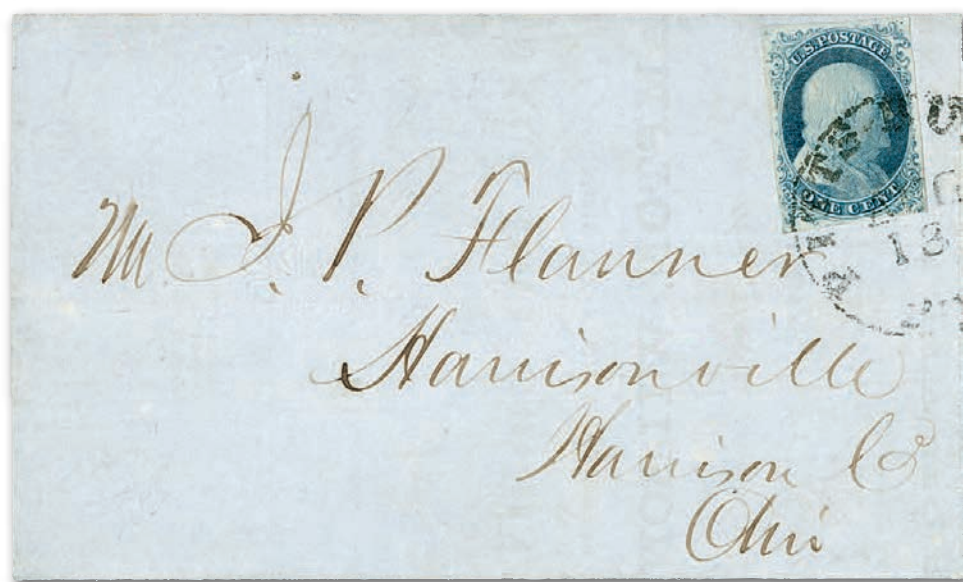 U.S. POSTAGE
ONE CENT
18
Mr J. P. Flanner
Harrisonville
Harrison Co
Ohio